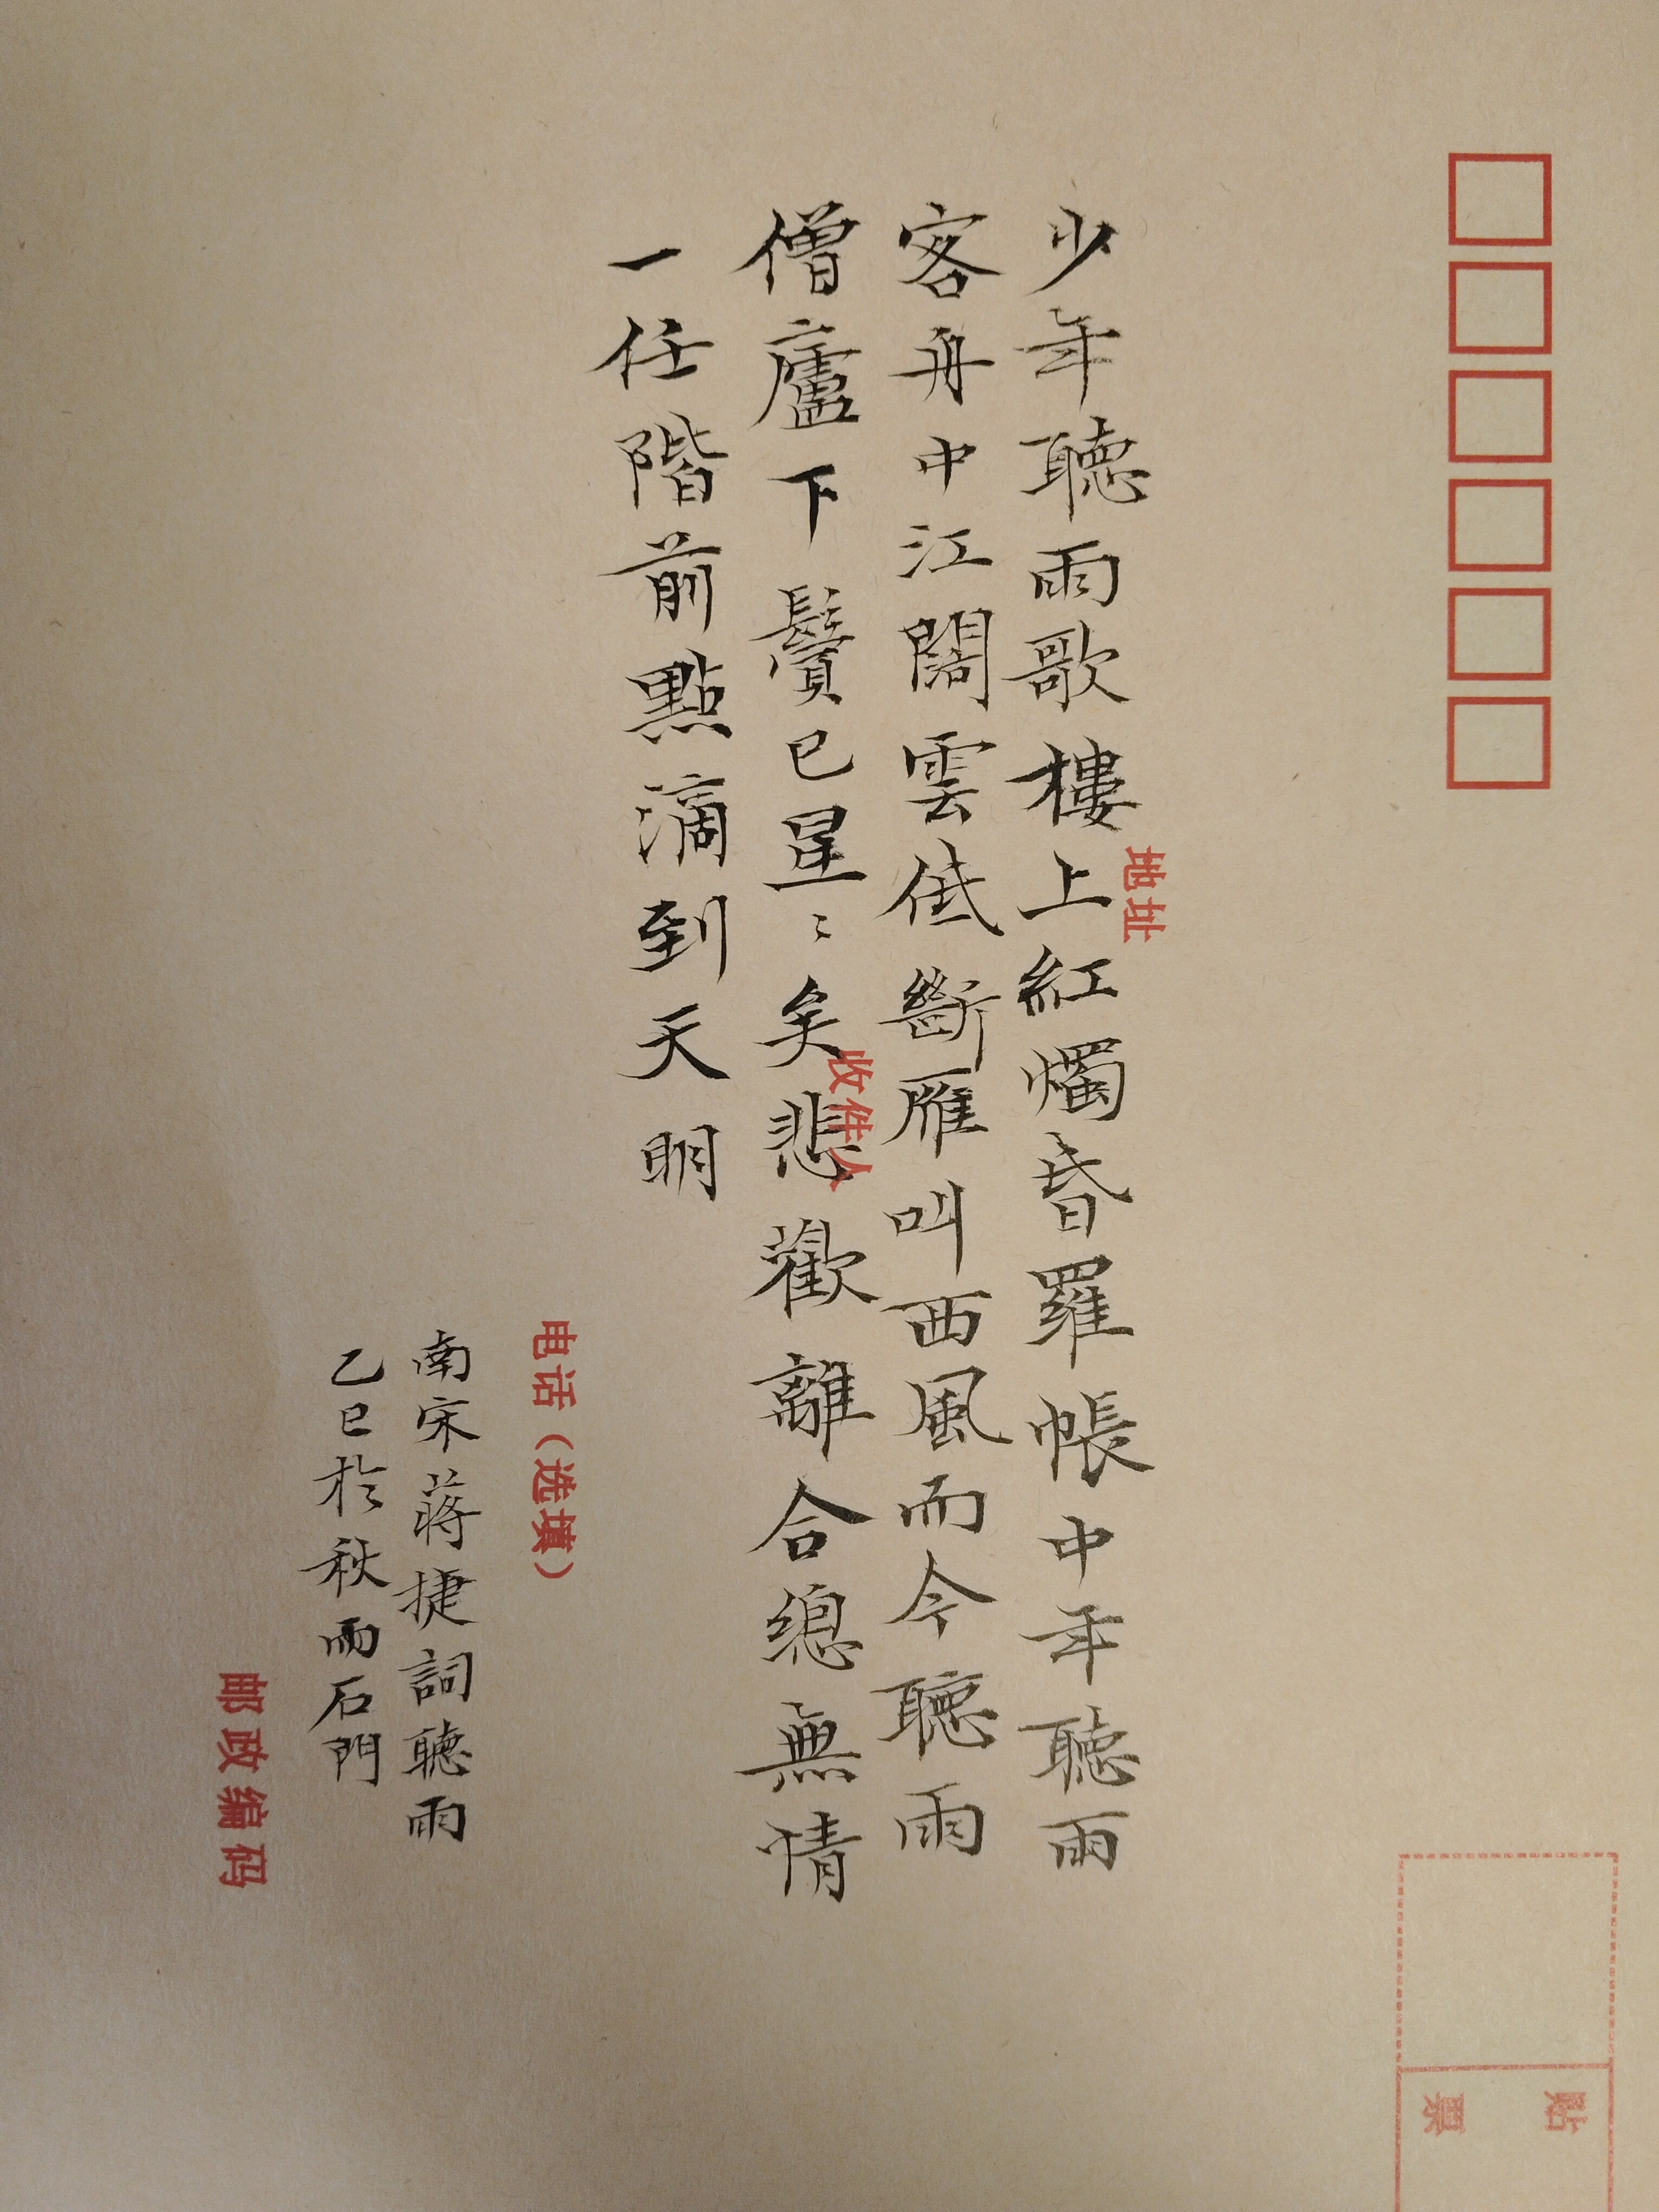 少年聽雨歌樓上紅燭昏羅帳中年聽雨
客舟中江闊雲低斷雁叫西風而今聽雨
僧廬下鬢已星〻矣悲歡離合總無情
一任階前點滴到天明
南宋蔣捷詞聽雨
乙巳於秋雨石門
地址
收件人
电话（选填）
邮政编码
贴票